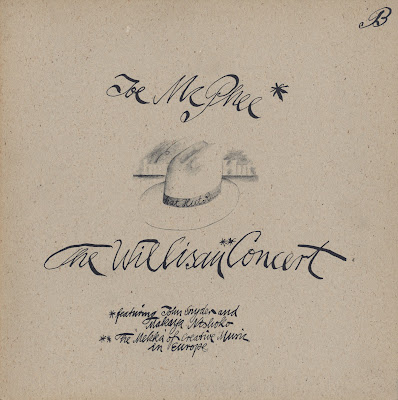 B
Joe McPhee*
Hat Hut
The Willisau** Concert
*featuring John Snyder and
Makaya Ntshoko
** The 'Mekka' of Creative Music
in Europe